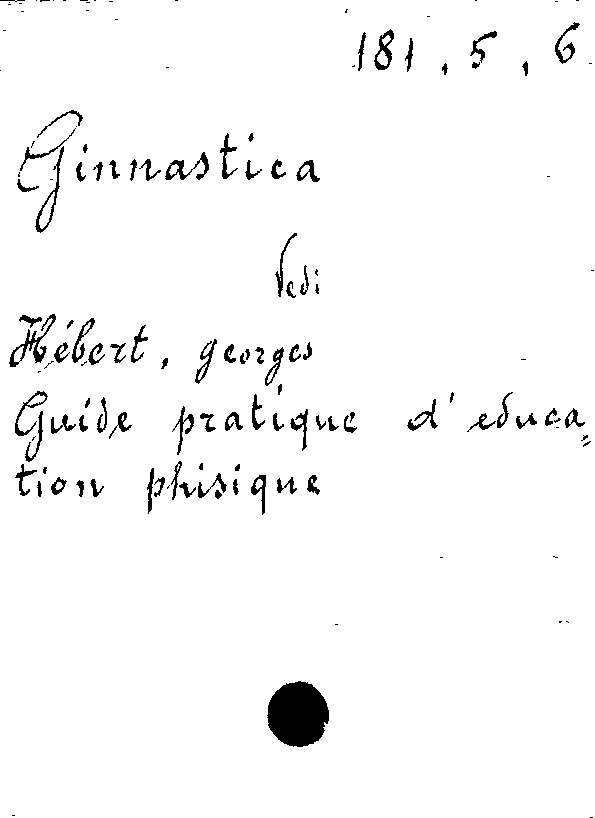 181, 5, 6
Ginnastica
Vedi
Hébert, georges
Guide pratique d'educa=
tion phisique